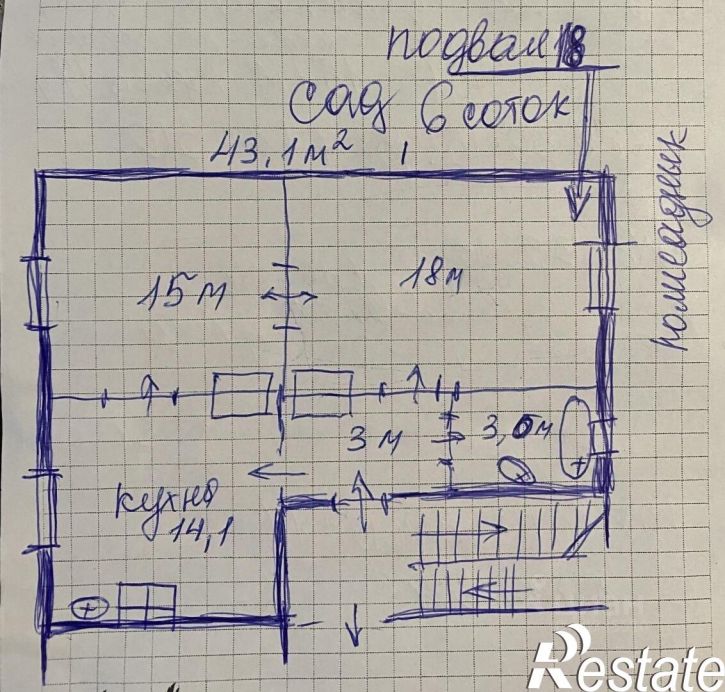 подвал 18
сад 6 соток
43,1м²
полисадник
15м
18м
3м
3,0м
кухня
14,1
Restate